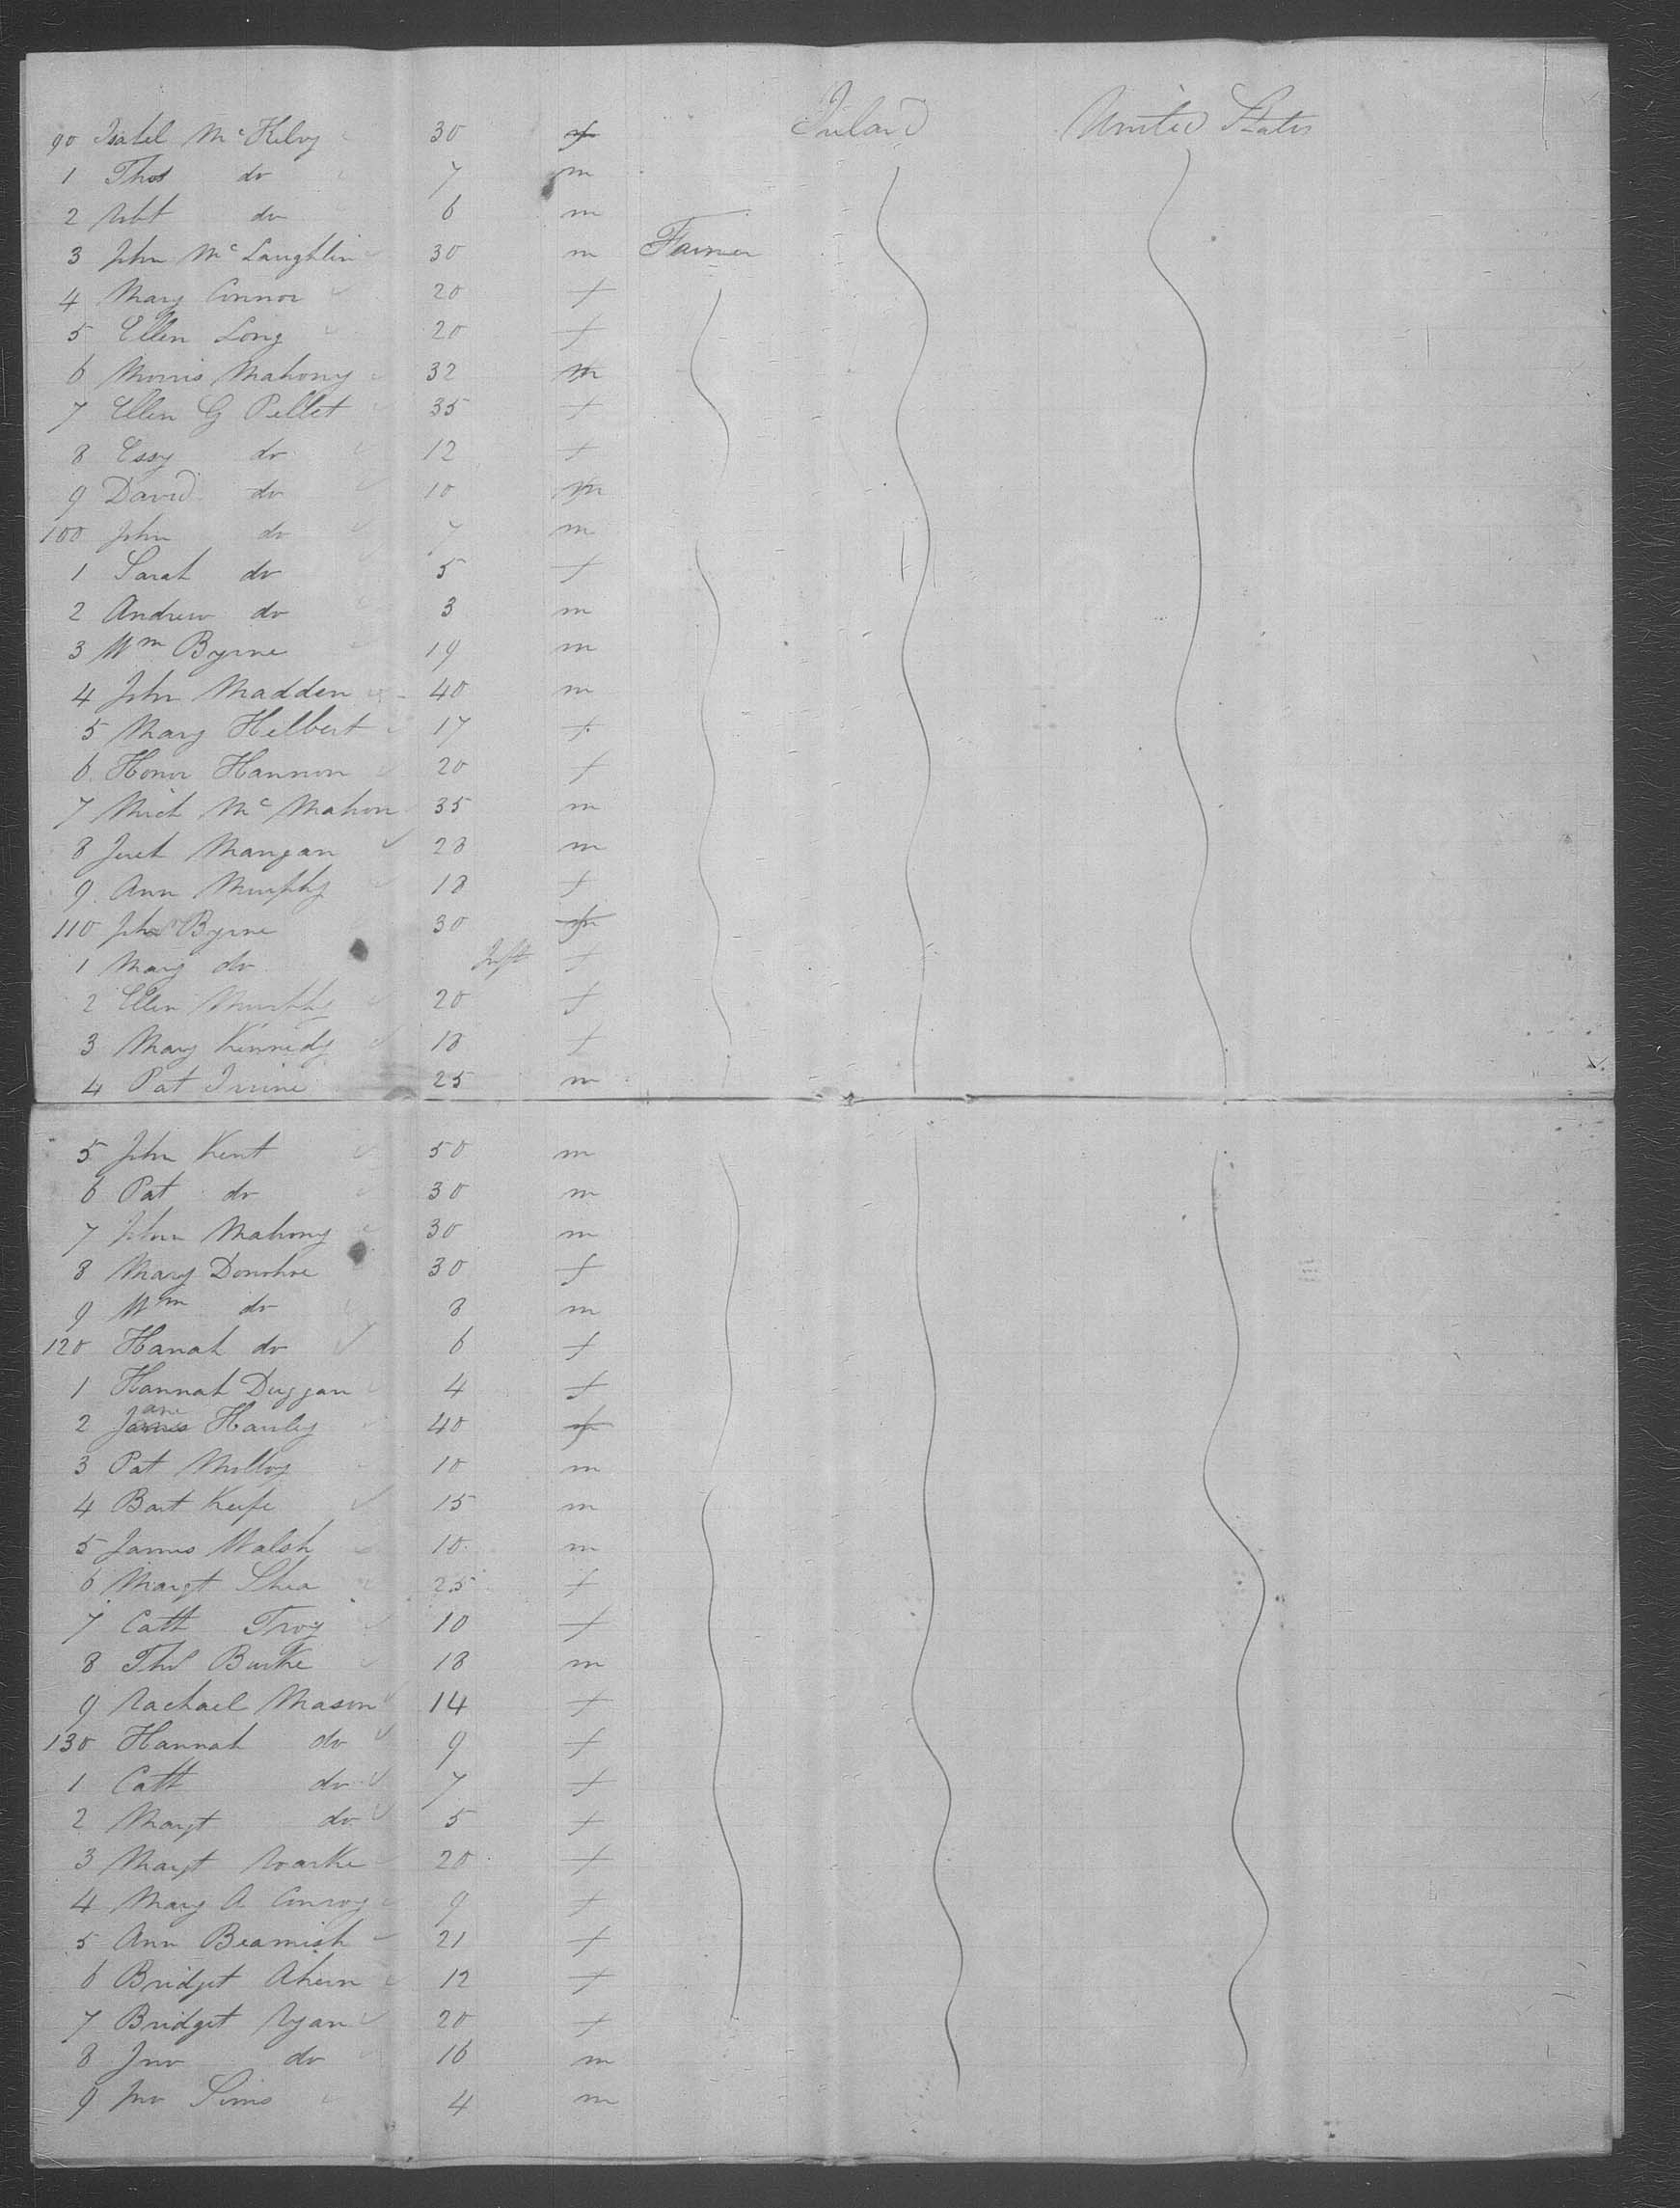 90 Isabel McKelvy 30 f Ireland United States
1 Thos do 7 m
2 Robt do 6 m
3 John McLaughlin 30 m Farmer
4 Mary Connor 20 f
5 Ellen Long 20 f
6 Morris Mahony 32 m
7 Ellen G Pellet 35 f
8 Essy do 12 f
9 David do 10 m
100 John do 7 m
1 Sarah do 5 f
2 Andrew do 3 m
3 Wm Byrne 19 m
4 John Madden 40 m
5 Mary Helbert 17 f
6 Honor Hannon 20 f
7 Mich McMahon 35 m
8 Jereh Mangan 28 m
9 Ann Murphy 18 f
110 Byrne 30 f
1 Mary do Inft f
2 Ellen Murphy 20 f
3 Mary Kennedy 18 f
4 Pat Irvine 25 m
5 John Kent 50 m
6 Pat do 30 m
7 John Mahony 30 m
8 Mary Donohoe 30 f
9 Wm do 8 m
120 Hanah do 6 f
1 Hannah Duggan 4 f
2 Jane Hanley 40 f
3 Pat Molloy 10 m
4 Bart Keefe 15 m
5 James Walsh 10 m
6 Margt Shea 25 f
7 Cath Troy 10 f
8 Thos Burke 18 m
9 Rachael Mason 14 f
130 Hannah do 9 f
1 Cath do 7 f
2 Margt do 5 f
3 Margt Roarke 20 f
4 Mary A Conroy 9 f
5 Ann Beamish 21 f
6 Bridget Ahern 12 f
7 Bridget Ryan 20 f
8 Jno do 16 m
9 Jno Sims 4 m